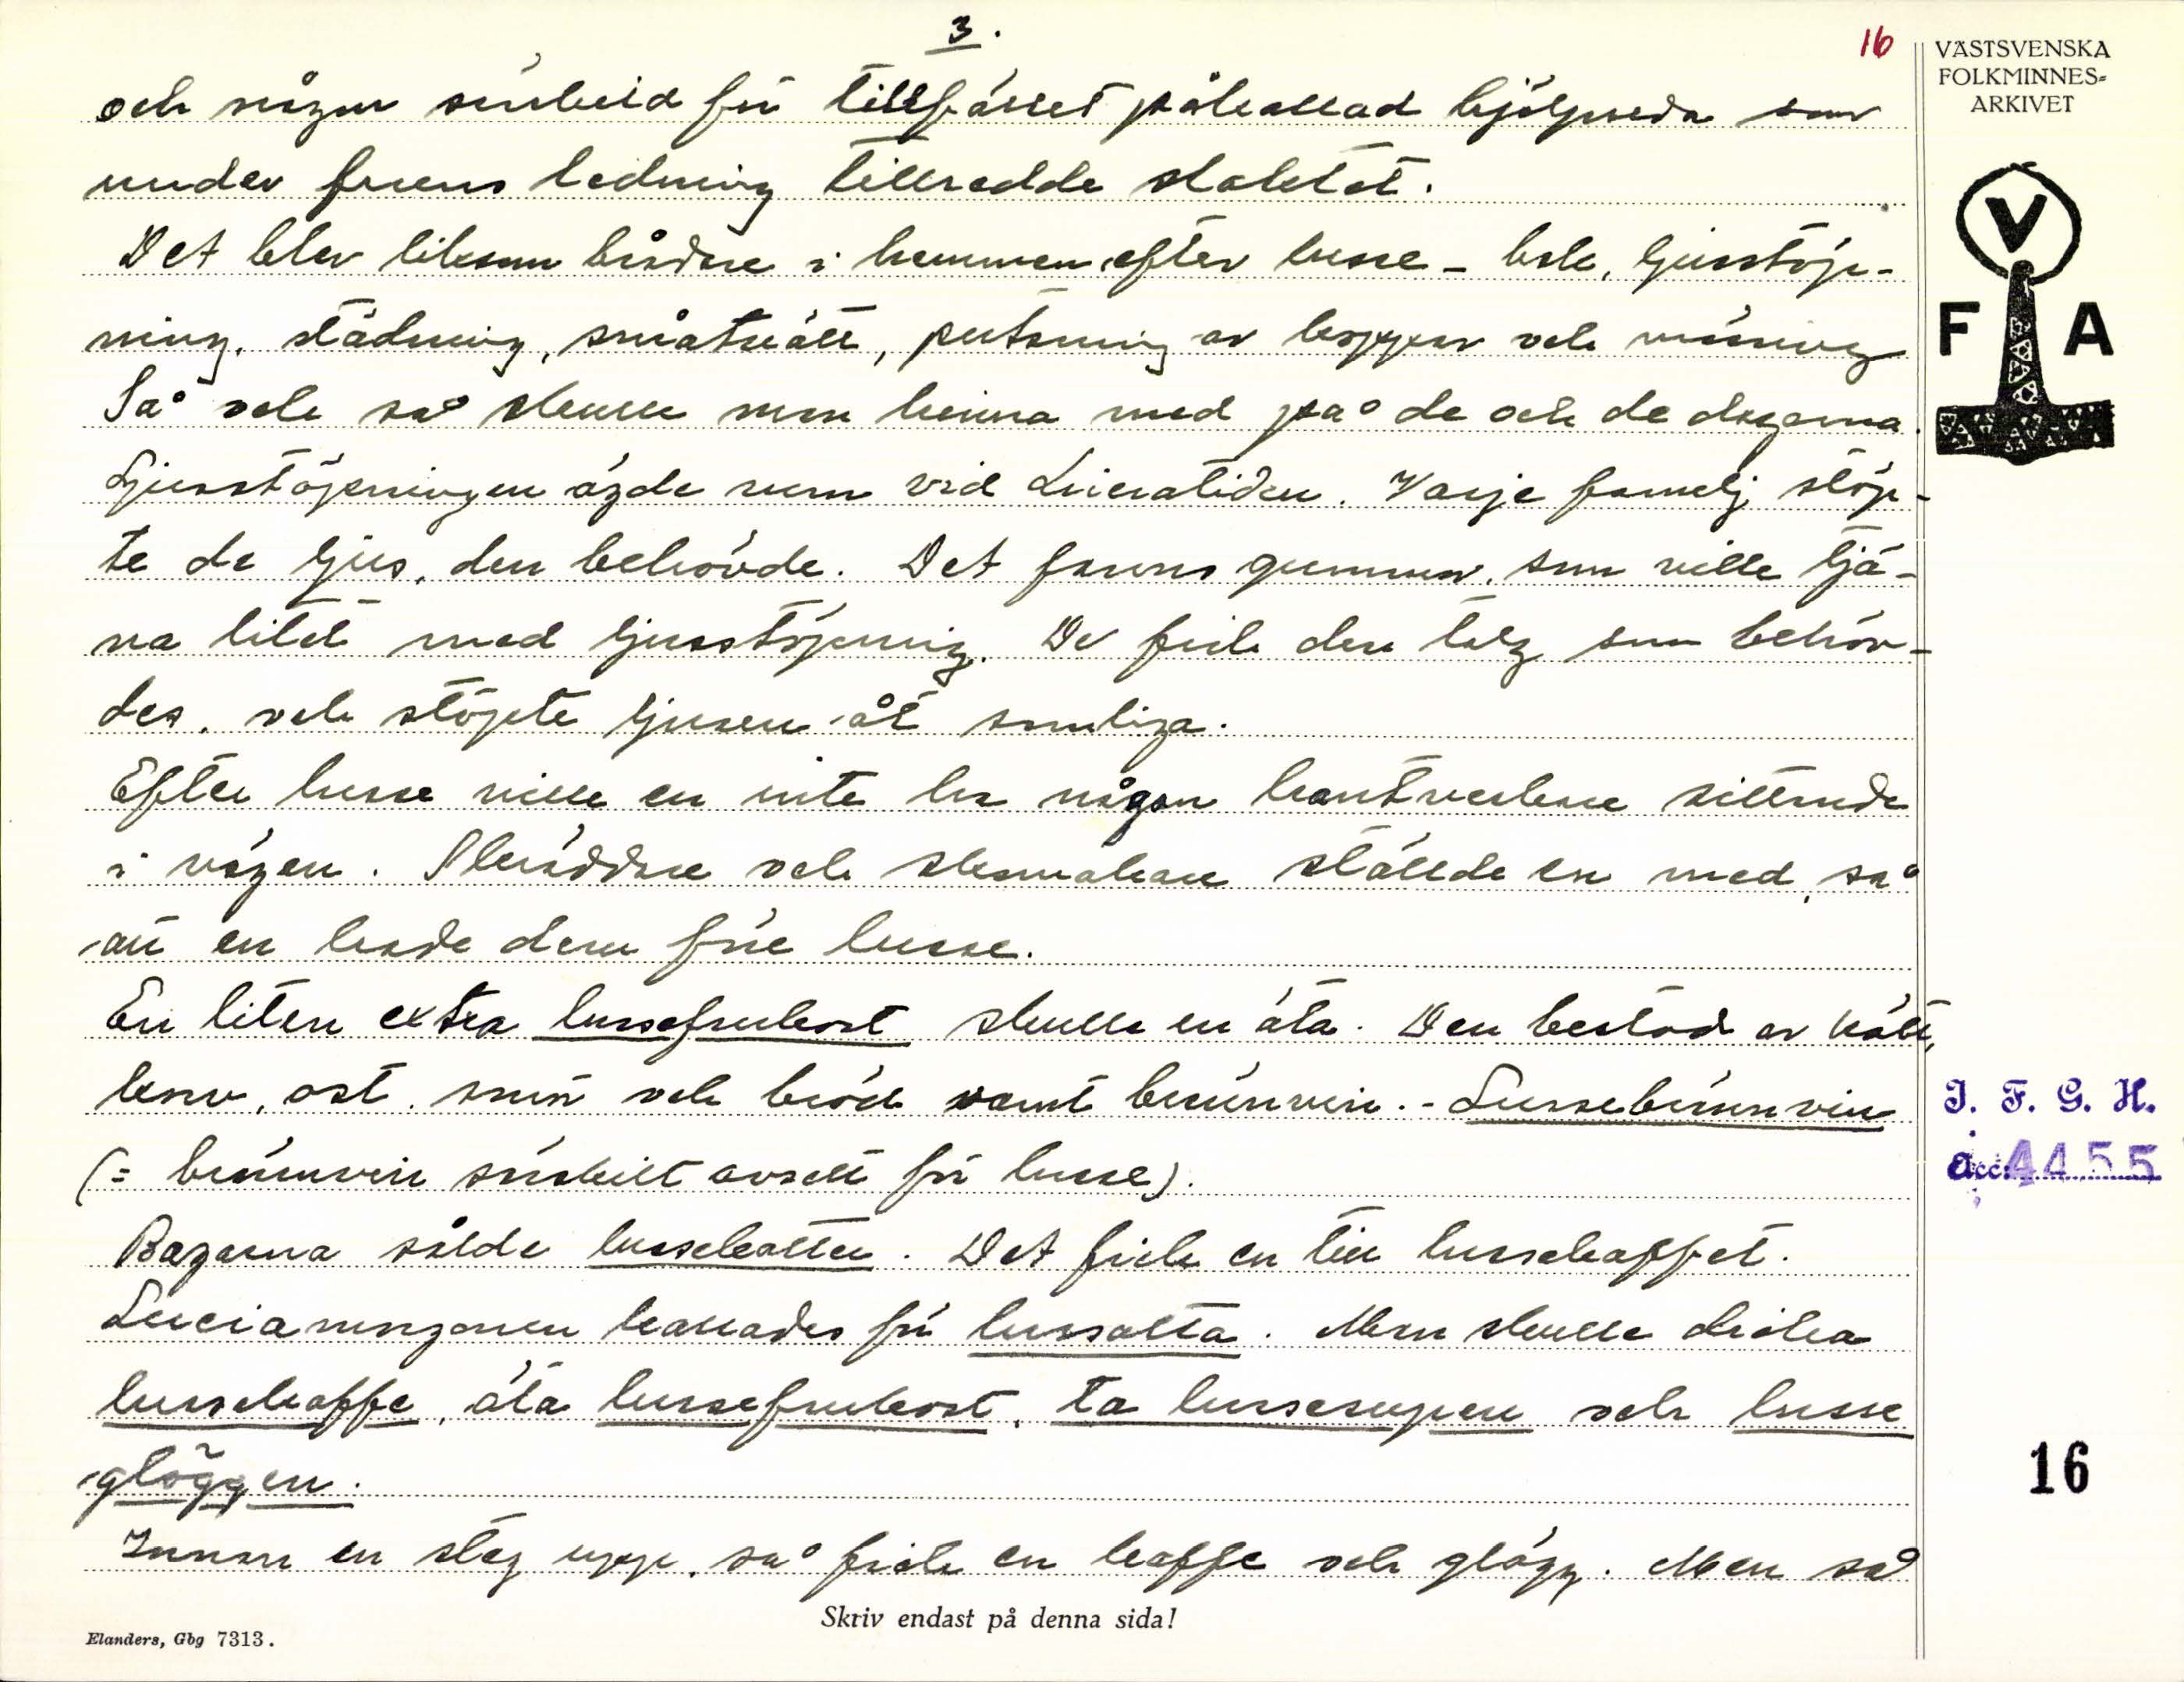 3.
16
VÄSTSVENSKA
FOLKMINNES-
ARKIVET
och någon särskild för tillfället påkallad hjälpreda som
under fruens ledning tillredde slaktet.
V
Det blev liksom brådare i hemmen efter lusse - bak, ljusstöp-
F A
ning, städning, småtvätt, putsning av koppar och mässing
Så och så skulle man hinna med på de och de dagarna.
Ljusstöpningen ägde rum vid Luciatiden. Varje familj stöp-
te de ljus, den behövde. Det fanns gummor, som ville tjä-
na litet med ljusstöpning. De fick den talg som behöv-
des, och stöpte ljusen åt somliga.
Efter lusse ville en inte ha någon hantverkare sittande
i vägen. Skräddare och skomakare ställde en med, så
att en hade dem före lusse.
En liten extra lussefrukost skulle en äta. Den bestod av kött,
korv, ost, smör och bröd samt brännvin. - Lussebrännvin
(= brännvin särskilt avsett för lusse).
J. F. G. H.
acc: 4455
Bagarna sålde lussekatter. Det fick en till lussekaffet.
Luciamorgonen kallades för lussotta. Man skulle dricka
lussekaffe, äta lussefrukost, ta lussesupen och lusse
glöggen.
16
Innan en steg upp, så fick en kaffe och glögg. Men så
Skriv endast på denna sida!
Elanders, Gbg 7313.